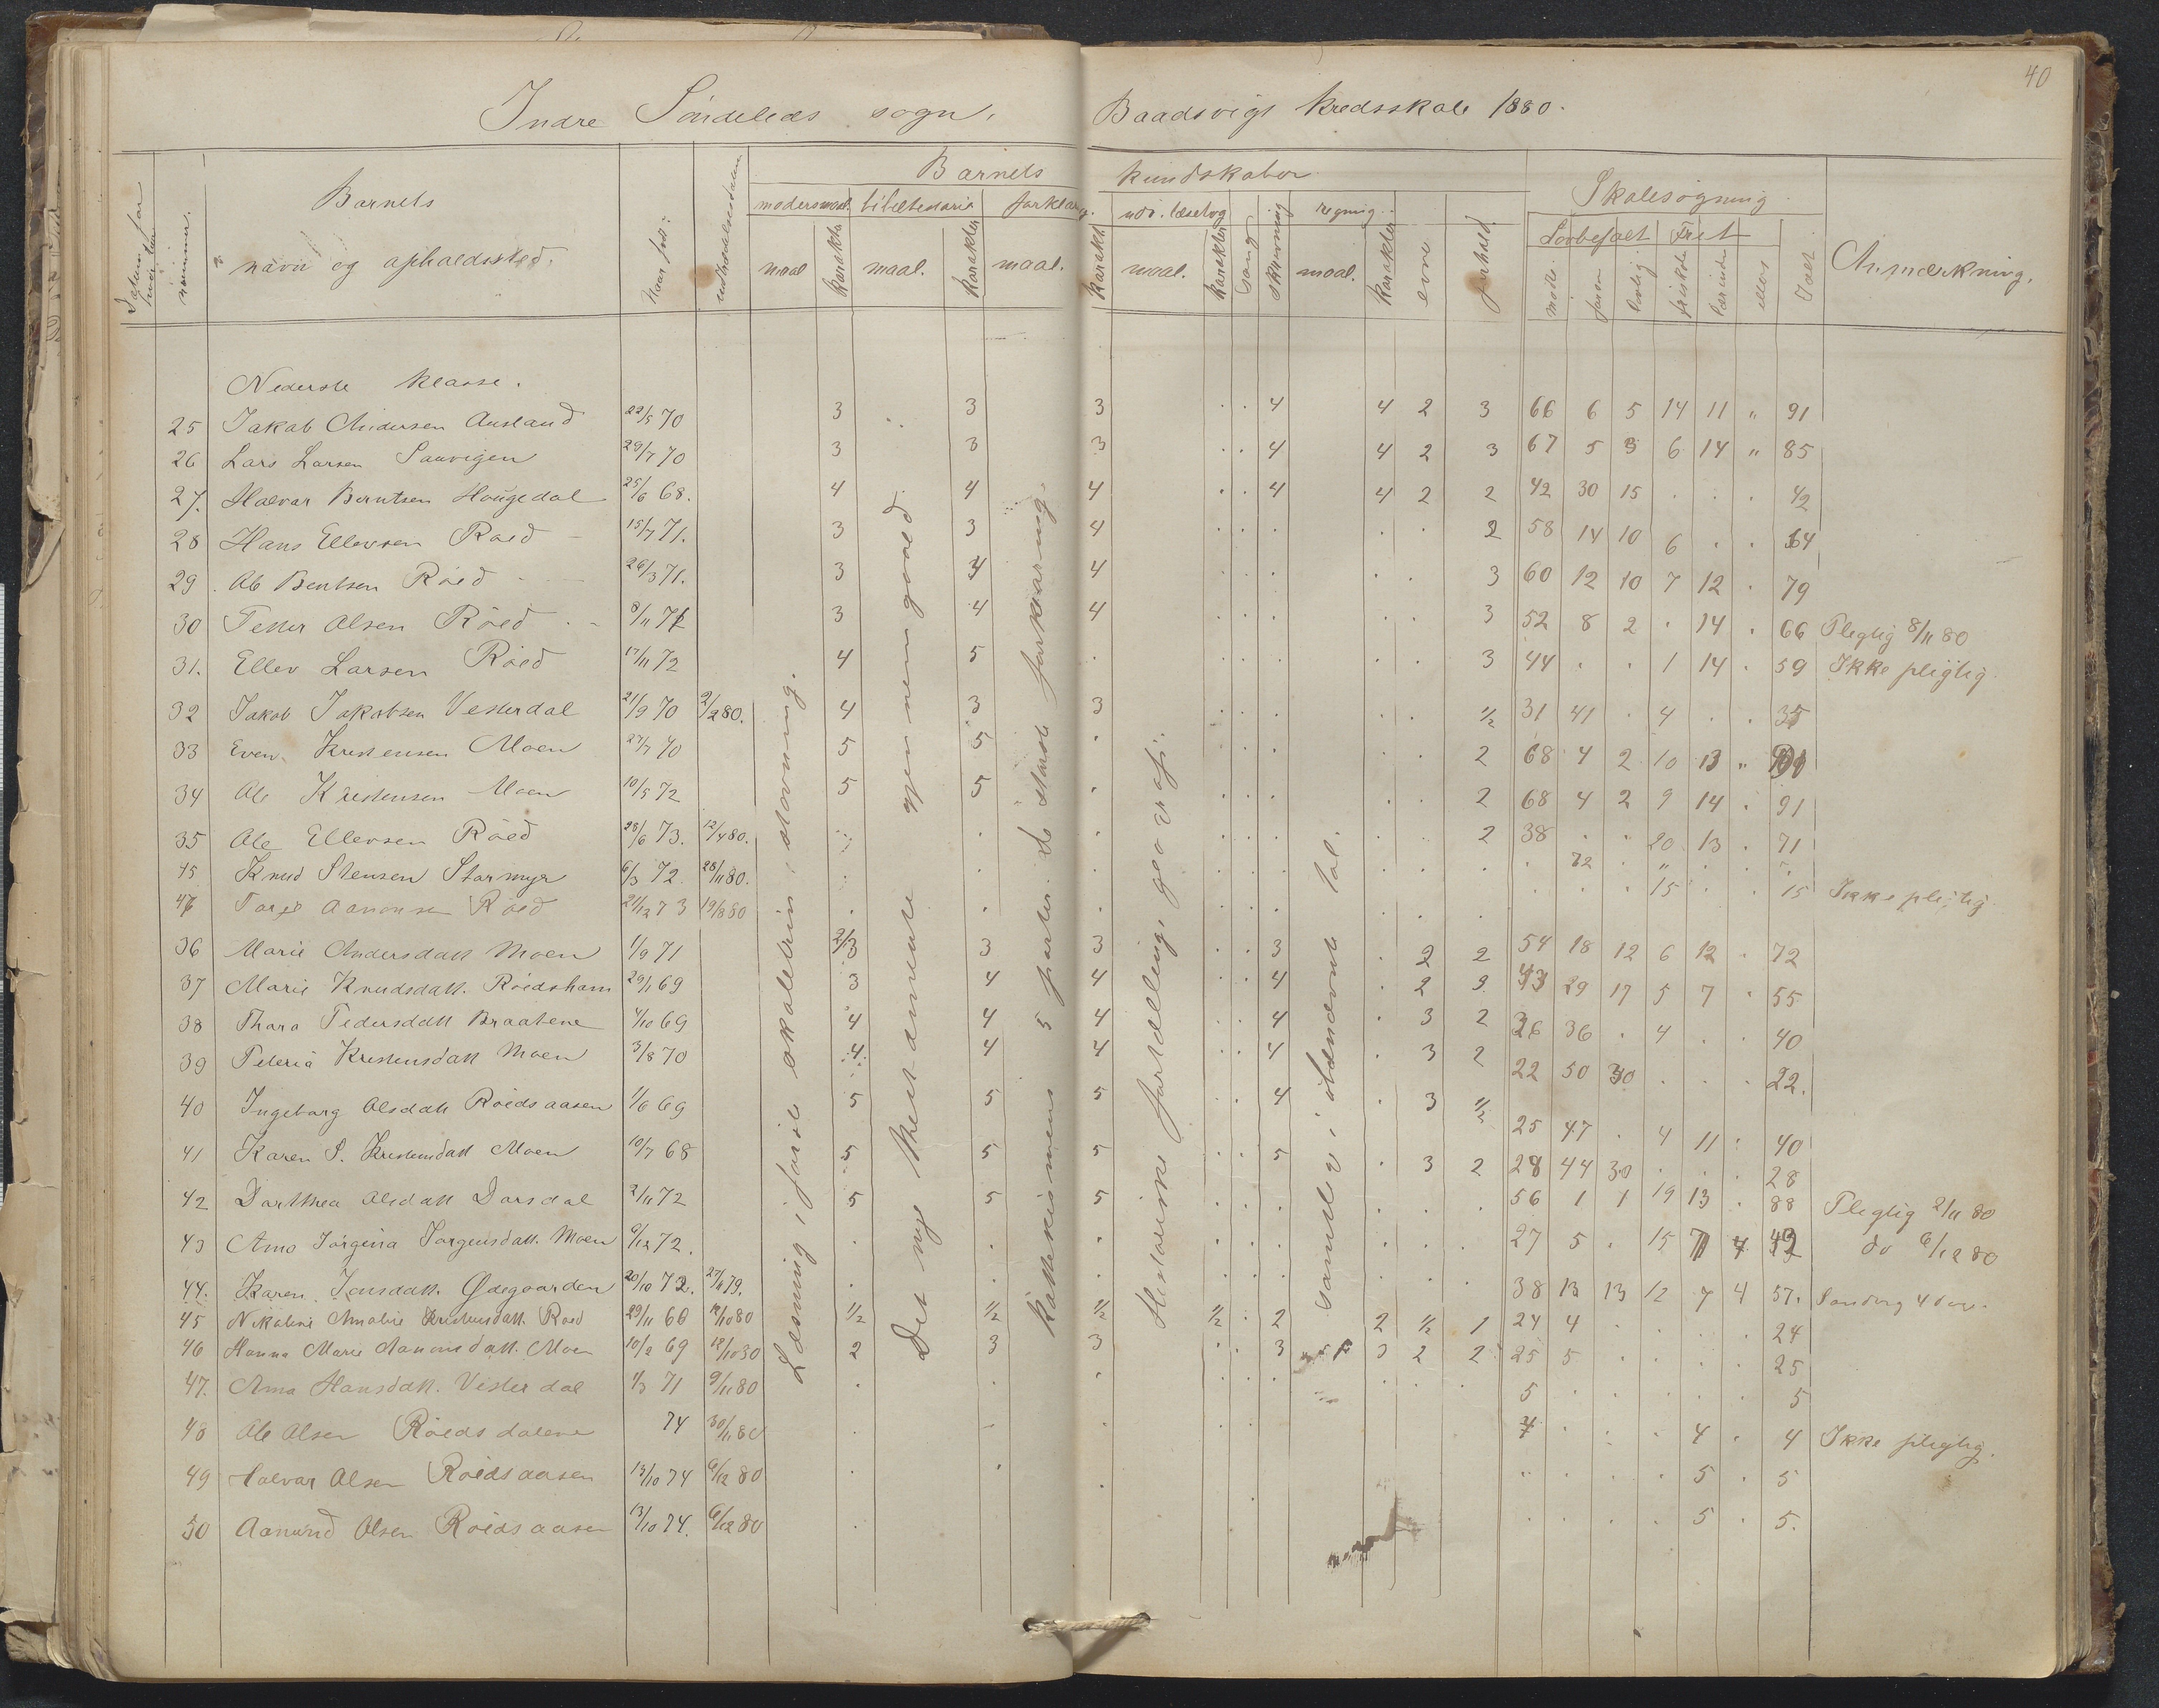 40
Indre Söndeleds sogn. Baadsvigs kredsskole 1880.
Barnets kundskaber
Skolesögning
Barnets navn og opholdssted.
nummer.
Naar föd.
modersmaal. bibelhistorie forklaring. udv. læsebog sang skrivning regning. evne forhold
Lovbefalet Fret
maal karakter maal. karakter maal. karakter maal. karakter maal. karakter
møde forsøm lovlig frivillig ialt
Anmærkning.
Nederste klasse.
25 Jakob Andersen Ausland 22/5 70 3 3 3 . . 4 4 2 3 66 6 5 14 11 " 91
26 Lars Larsen Sauvigen 29/7 70 3 3 3 . . 4 4 2 3 67 5 3 6 14 " 85
27. Halvar Berntsen Hougedal 25/6 68. 4 4 4 . . 4 4 2 2 42 30 15 . . . 42
28 Hans Ellevsen Röed 15/7 71. 3 3 4 . . . . . 2 58 14 10 6 . . 64
29 Ole Bentsen Röed 26/3 71. 3 4 4 . . . . . 3 60 12 10 7 12 . 79
30 Petter Olsen Röed 8/11 72 3 4 4 . . . . . 3 52 8 2 . 14 . 66 Pligtig 8/11 80
31. Ellev Larsen Röed 17/11 72 4 5 . . . . . . 3 44 . . 1 14 . 59 Ikke pligtig
32 Jakob Jakobsen Vesterdal 21/9 70 9/2 80. 4 3 3 . . . . . 1/2 31 41 . 4 . . 35
33 Even Kristensen Moen 27/7 70 5 5 . . . . . . 2 68 4 2 10 13 " 91
34 Ole Kristensen Moen 10/5 72 5 5 . . . . . . 2 68 4 2 9 14 . 91
35 Ole Ellevsen Röed 28/6 73. 12/4 80. . . . . . . . . 2 38 . . 20 13 . 71
45 Knud Stensen Stormyr 6/3 72 28/11 80. . . . . . . . . . . 72 . " . . .
Aanonsen Röed 21/12 73 19/8 80 . . . . . . . . . . . . 15 . . 15 Ikke pligtig
36 Marie Andersdatt Moen 1/9 71 2/3 3 3 . . 3 . 2 2 54 18 12 6 12 . 72
37 Marie Knudsdatt. Röedsham 29/1 69 3 4 4 . . 4 . 2 2 43 29 17 5 7 . 55
38 Thora Pedersdatt Braatene 4/10 69 4 4 4 . . 4 . 3 2 36 36 . 4 . . 40
39 Peteria Kristensdatt Moen 3/8 70 4 4 4 . . 4 . 3 2 22 50 30 . . . 22.
40 Ingeborg Olsdatt Röedsaasen 1/6 69 5 5 5 . . 4 . 3 1/2 25 47 . 4 11 . 40
41 Karen S. Kristensdatt Moen 10/7 68 5 5 5 . . 5 . 3 2 28 44 30 . . . 28
42 Dorthea Olsdatt Dorsdal 2/11 72 5 5 5 . . . . . . 56 1 1 19 13 . 88 Pligtig 2/11 80
43 Anna Jörgina Jorgensdatt. Moen 6/12 72. . . . . . . . . . 27 5 . 15 7 49 do 6/12 80
44. Karen Jensdatt. Ødegaarden 20/10 72. 27/11 79. . . . . . . . . . 38 13 13 12 7 4 57.
45 Nikoline Amalie Kristensdatt. Röed 29/11 66 12/10 80 1/2 1/2 1/2 1/2 . 2 2 1/2 1 24 4 . . . . 24
46 Hanna Marie Aanonsdatt. Moen 10/2 69 12/10 80 2 3 3 . . 3 3 2 2 25 5 . . . . 25
47. Anna Hansdatt. Vesterdal 1/3 71 9/11 80 . . . . . . . . . 5 . . . . . 5
48 Ole Olsen Röedsdalene 74 30/11 80 . . . 4 . . . 4 . 4 Ikke pligtig.
49 Halvar Olsen Röedsaasen 13/10 74 6/12 80 . . . . . . . 5 . 5
50 Aanund Olsen Röedsaasen 13/10 74. 6/12 80 . . . . . 5 . 5.
Læsning i förste skoletrin, stavning.
Det nye testamente gjennemgaaed.
Kattekismens 5 parter. de störste forklaring.
Historiske fortælling, geografi.
samtlige i ubenævnte tal.